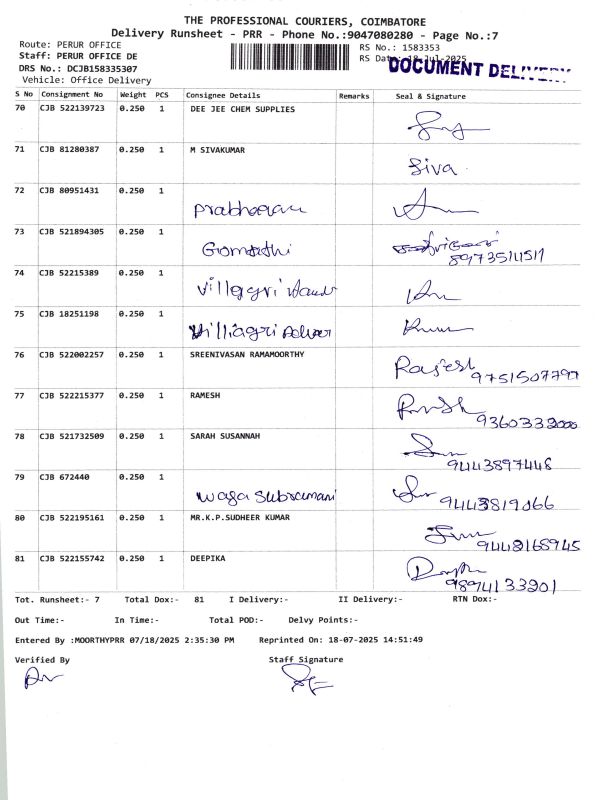 THE PROFESSIONAL COURIERS, COIMBATORE
Delivery Runsheet - PRR - Phone No.:9047080280 - Page No.:7
Route: PERUR OFFICE
Staff: PERUR OFFICE DE
DRS No.: DCJB158335307
Vehicle: Office Delivery
RS No.: 1583353
RS Date: 18-Jul-2025
DOCUMENT DELIVERY
S No Consignment No Weight PCS Consignee Details Remarks Seal & Signature
70 CJB 522139723 0.250 1 DEE JEE CHEM SUPPLIES
71 CJB 81280387 0.250 1 M SIVAKUMAR
Siva
72 CJB 80951431 0.250 1
73 CJB 521894305 0.250 1
Gomathi
74 CJB 52215389 0.250 1
75 CJB 18251198 0.250 1
76 CJB 522002257 0.250 1 SREENIVASAN RAMAMOORTHY
Rajesh 9751507797
77 CJB 522215377 0.250 1 RAMESH
9360332000
78 CJB 521732509 0.250 1 SARAH SUSANNAH
9443897448
79 CJB 672440 0.250 1
9443819066
80 CJB 522195161 0.250 1 MR.K.P.SUDHEER KUMAR
9448168945
81 CJB 522155742 0.250 1 DEEPIKA
9894133201
Tot. Runsheet:- 7 Total Dox:- 81 I Delivery:- II Delivery:- RTN Dox:-
Out Time:- In Time:- Total POD:- Delvy Points:-
Entered By :MOORTHYPRR 07/18/2025 2:35:30 PM Reprinted On: 18-07-2025 14:51:49
Verified By Staff Signature